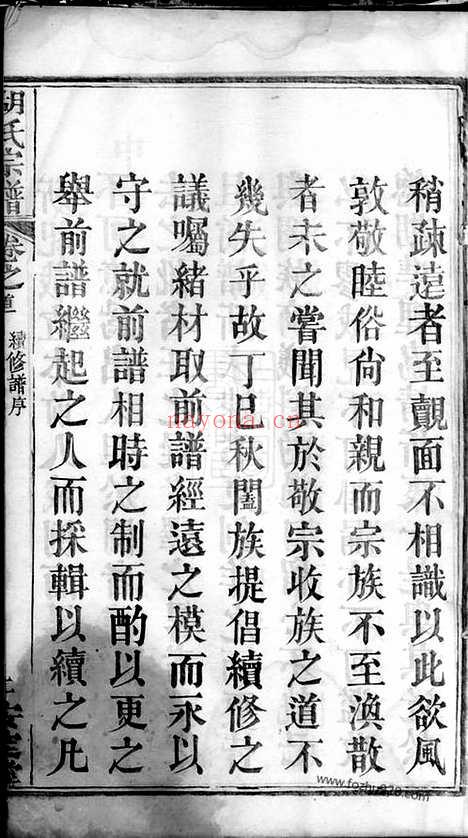 稍疎遠者至覿面不相識以此欲風
敦敬睦俗尙和親而宗族不至渙散
者未之嘗聞其於敬宗收族之道不
幾失乎故丁巳秋闔族提倡續修之
議囑緒材取前譜經遠之模而永以
守之就前譜相時之制而酌以更之
舉前譜繼起之人而採輯以續之凡
胡氏宗譜
卷之首
續修譜序
nayona.cn
www.fozhu920.com